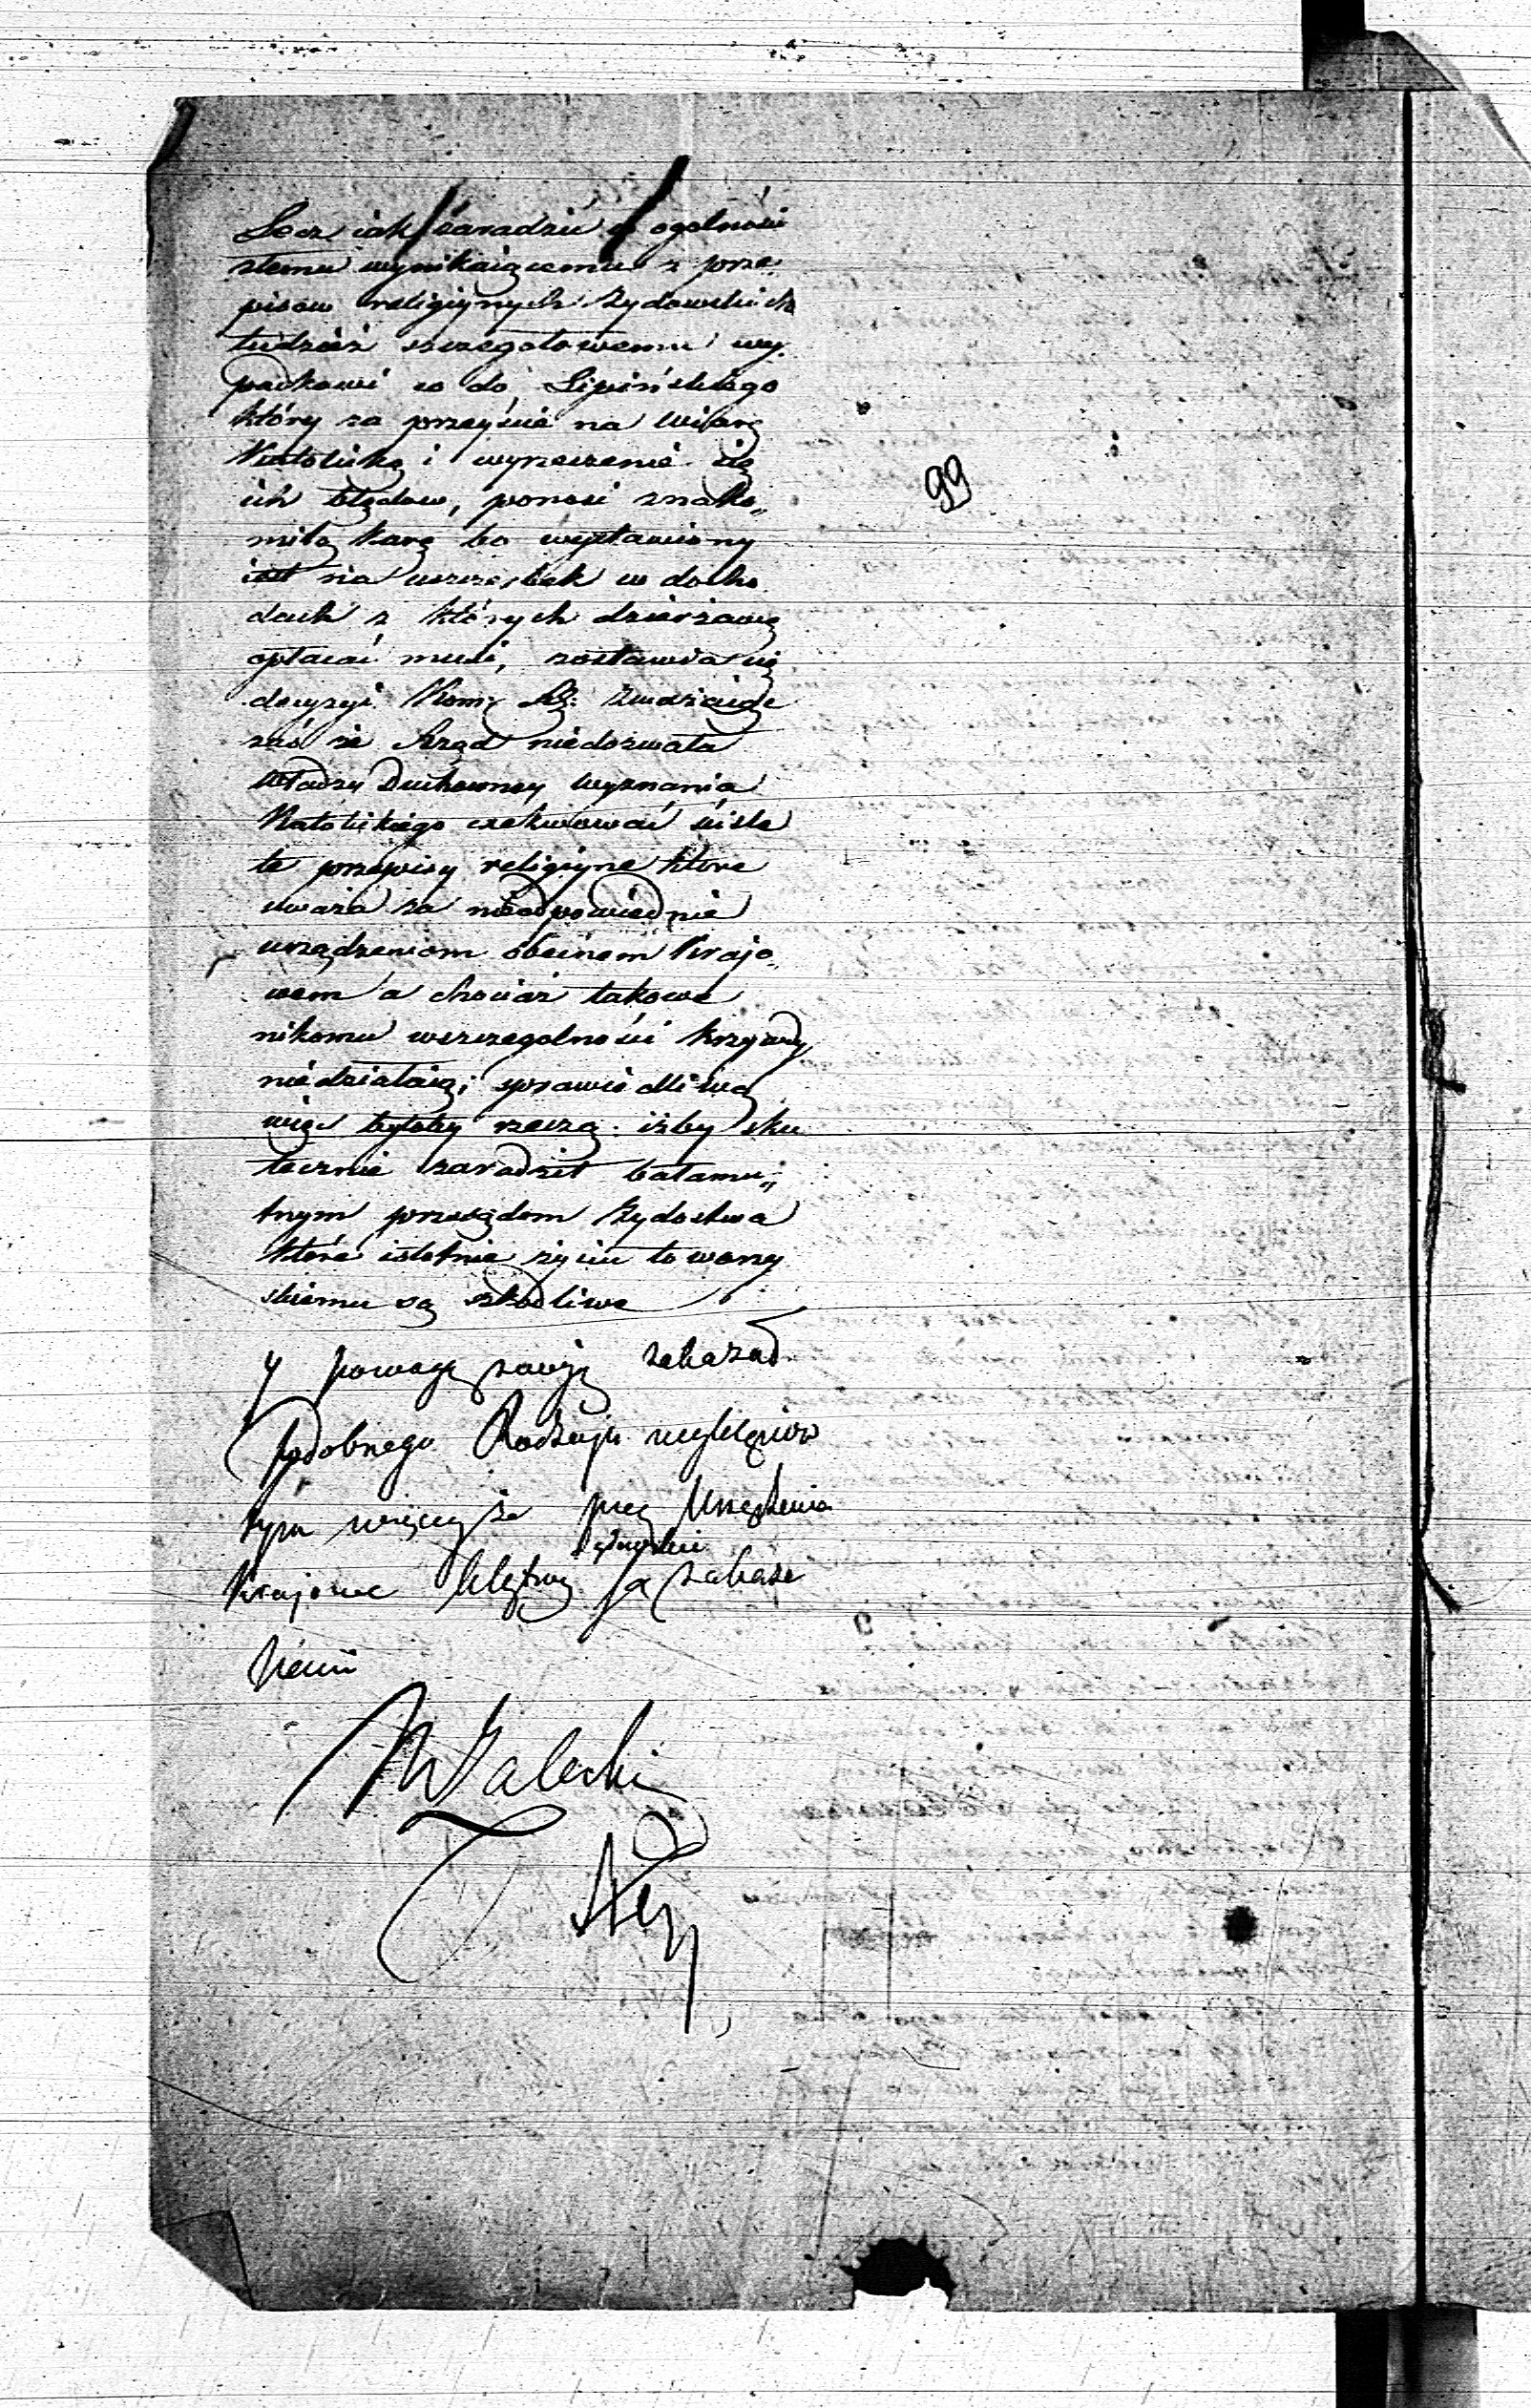 Lecz iak zaradzić w ogolności
złemu wynikaiącemu z prze
pisow religiynych żydowskich
tudzież szczegołowemu wy
padkowi co do Lipińskiego
który za przeyście na wiarę
Katolicką i wyrzeczenie się
ich błędow, ponosi znako„
mitą karę bo wystawiony
iest na uszczerbek w docho
dach z których dzierżawę
opłacać musi, zostawia się
decyzyi Kom: Rz:
zaś że Rząd niedozwala
Władzy Duchowney wyznania
Katolickiego exekwować ściśle
te przepisy religiyne które
uważa za nieodpowiednie
urządzeniom obecnem Krajo„
wem a chociaż takowe
nikomu wszczegolności krzywdy
niedziałaią; sprawiedliwą
więc byłoby rzeczą iżby sku
tecznie zaradził bałamu„
tnym przesądom żydostwa
które istotnie życiu towarzy
skiemu są szkodliwe
y powagą swoją zakazał
podobnego Rodzaju wyklęciow
tym więcey że przez Urządzenia
Krajowe klątwy są zakaza
nemi
Zaleski
99